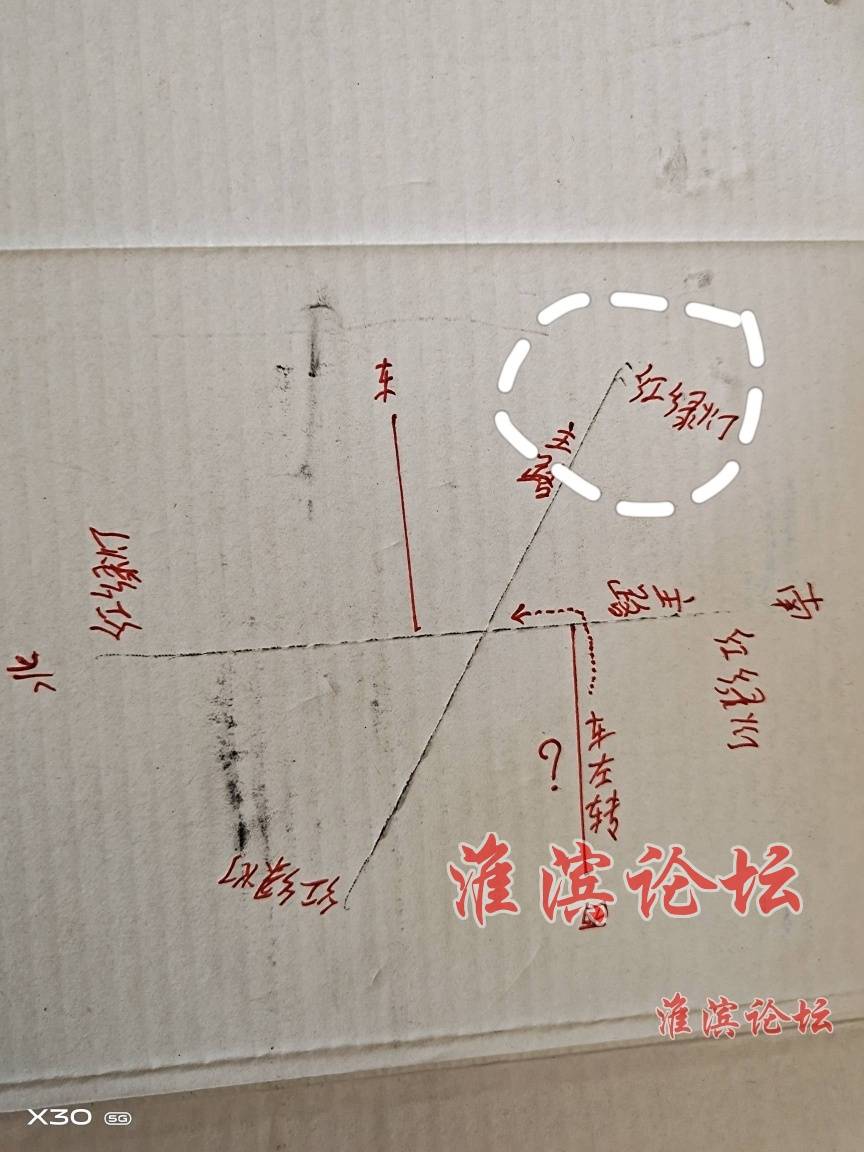 东
红绿灯
主路
红绿灯
主路
南
红绿灯
北
车左转
?
红绿灯
西
淮滨论坛
淮滨论坛
X30 5G